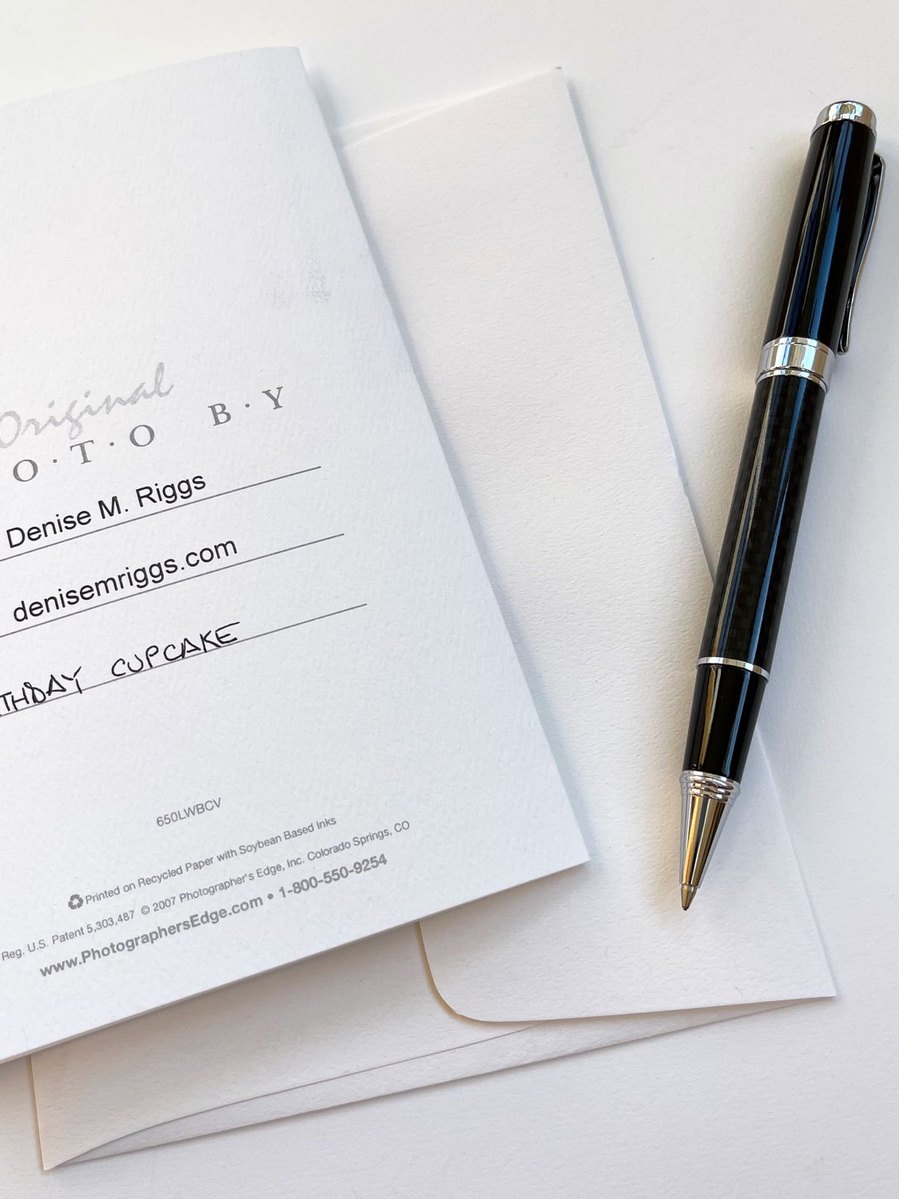 Original
O·T·O B·Y
Denise M. Riggs
denisemriggs.com
THDAY CUPCAKE
650LWBCV
Printed on Recycled Paper with Soybean Based Inks
Reg. U.S. Patent 5,303,487 © 2007 Photographer's Edge, Inc. Colorado Springs, CO
www.PhotographersEdge.com • 1-800-550-9254